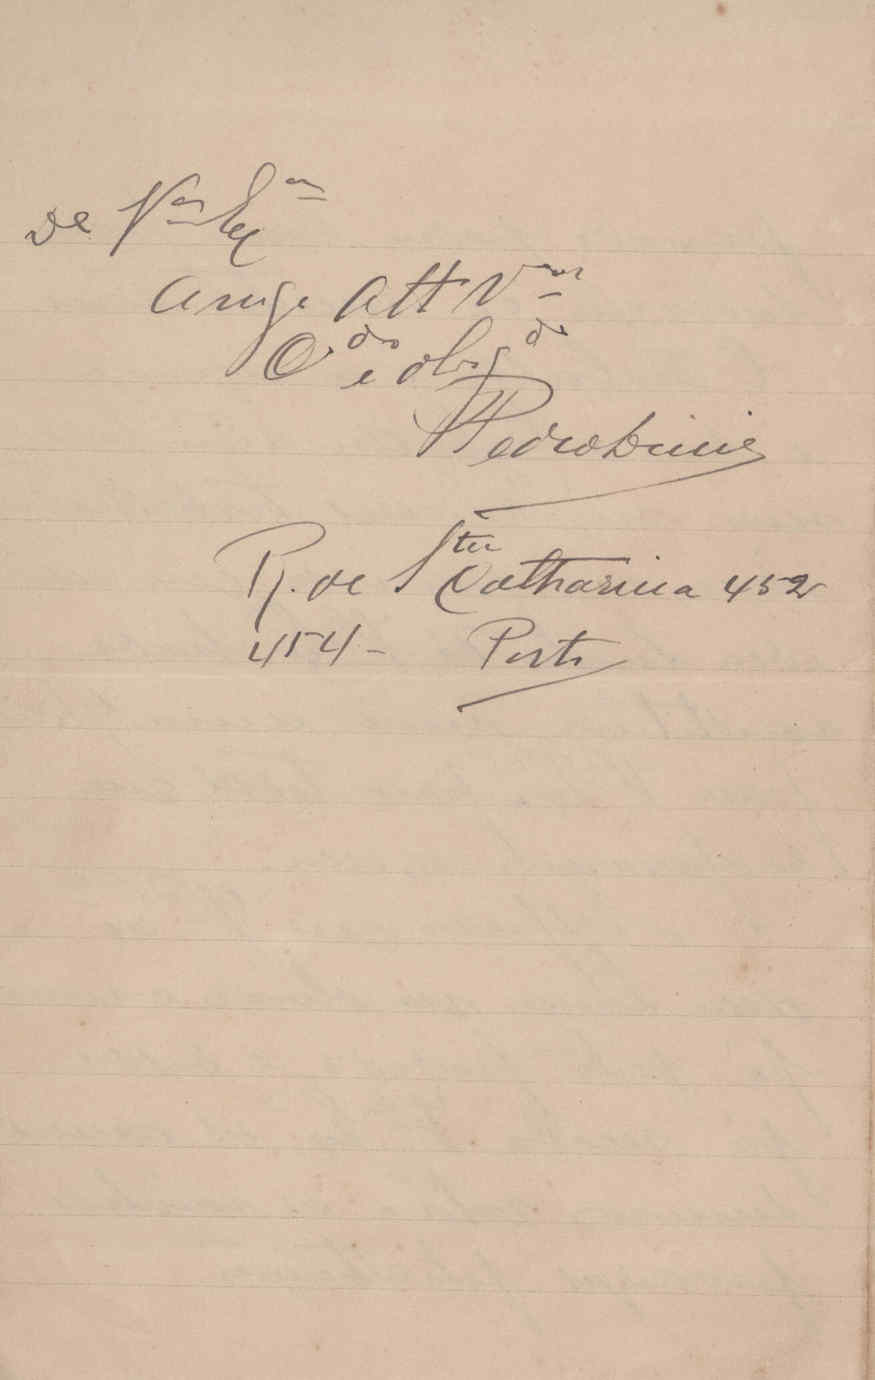 de V.ª Ex.ª
Amg.º Att.º V.or
C.do e obrg.do
Pedro
R. de S.ta Catharina 452
454 - Porto